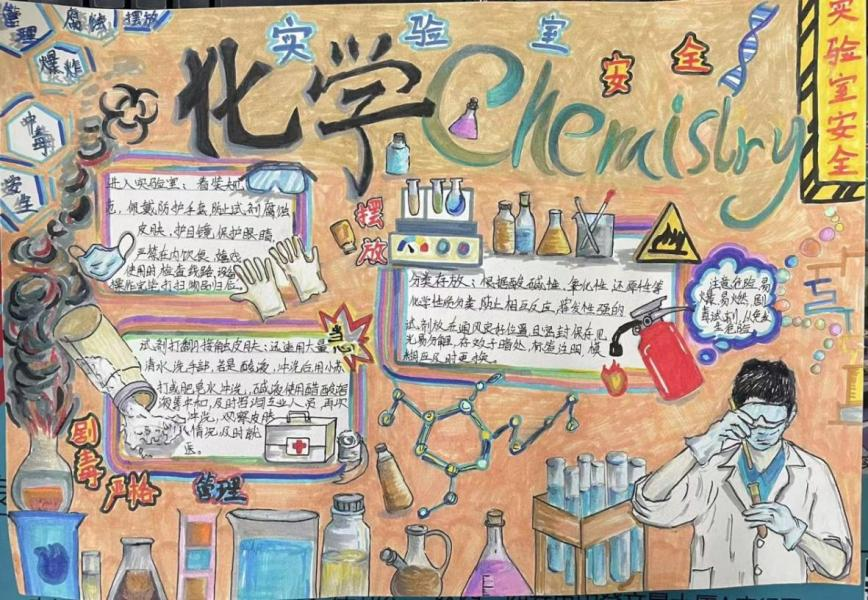 管理
腐蚀
摆放
爆炸
中毒
安全
实验室
安全
化学Chemistry
实验室安全
进入实验室：着装规
范，佩戴防护手套，防止试剂腐蚀
皮肤，护目镜保护眼睛。
严禁在内饮食、嬉戏
使用时检查线路、设备
摆放
分类存放：根据酸碱性、氧化性、还原性等
化学性质分类，防止相互反应，挥发性强的
试剂放在通风良好位置且密封保存，见
光易分解，存放于暗处，标签注明，
注意危险，易
爆、易燃、剧
毒试剂，以免发
生危险
当心
试剂打翻接触皮肤：迅速用大量
清水洗手部，若是酸液，冲洗后用小苏
打或肥皂水冲洗，碱液使用醋酸溶
液等中和，及时咨询专业人员，再次
冲洗，观察皮肤
情况，及时就
医。
剧毒
严格
管理